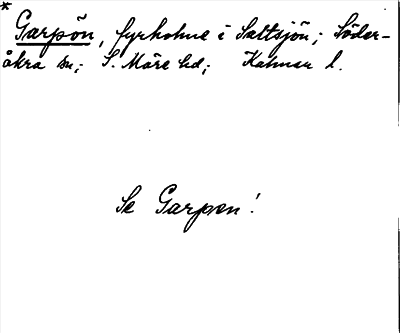 * Garpön, fyrholme i Saltsjön; Söder-
åkra sn; S. Möre hd; Kalmar l.
Se Garpen!